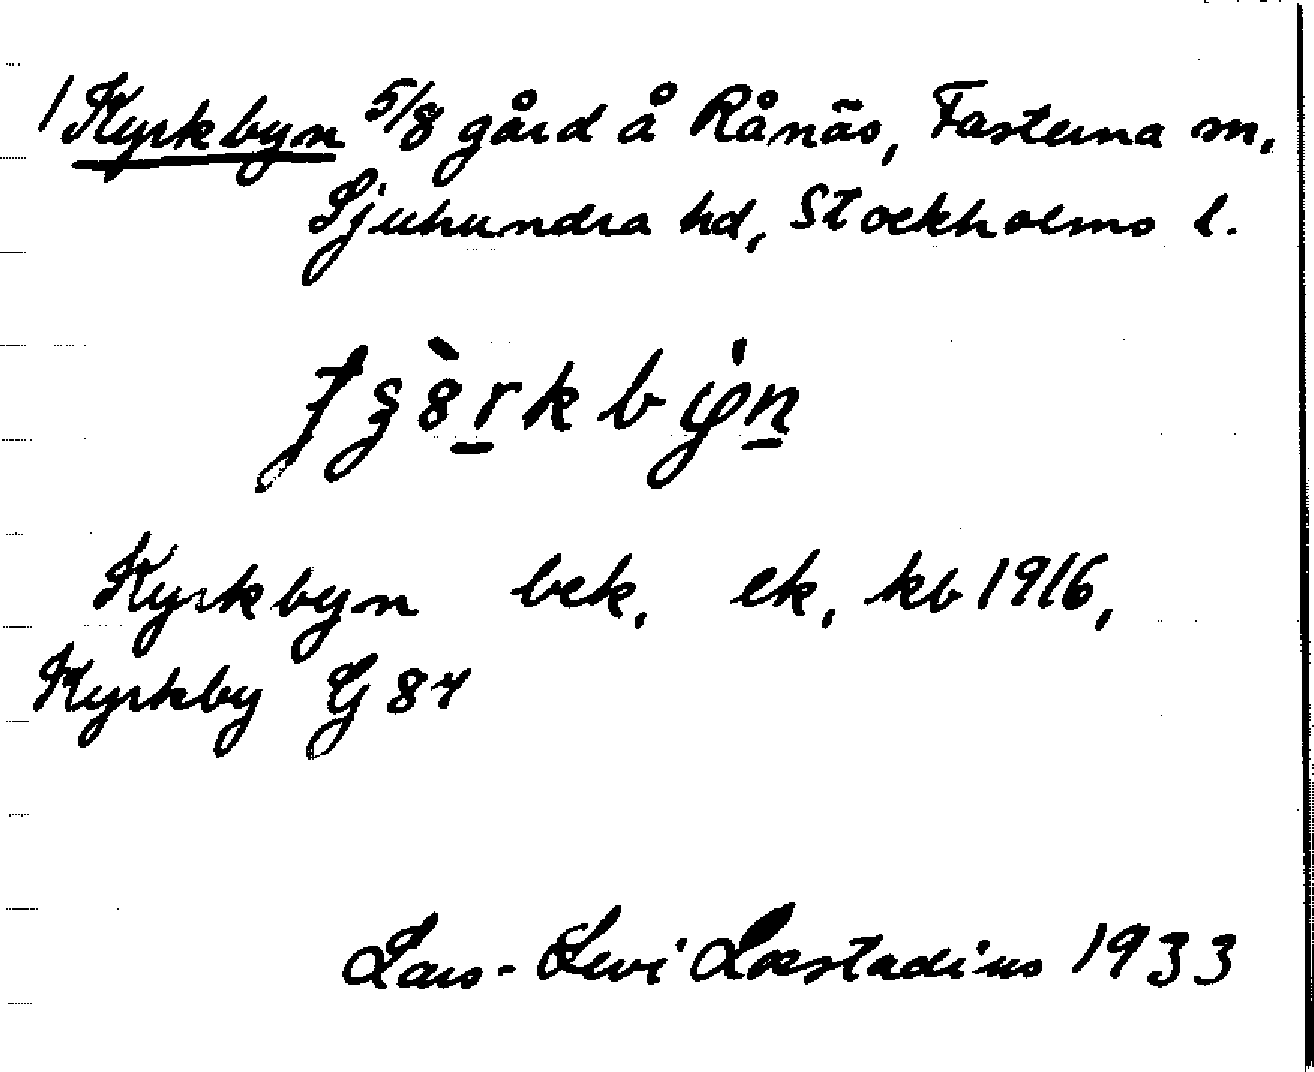 1 Kyrkbyn 5/8 gård å Rånäs, Fasterna sn,
Sjuhundra hd, Stockholms l.
Kyrkbyn bek, ek, kb 1916,
Kyrkby G 84
Lars-Levi Læstadius 1933